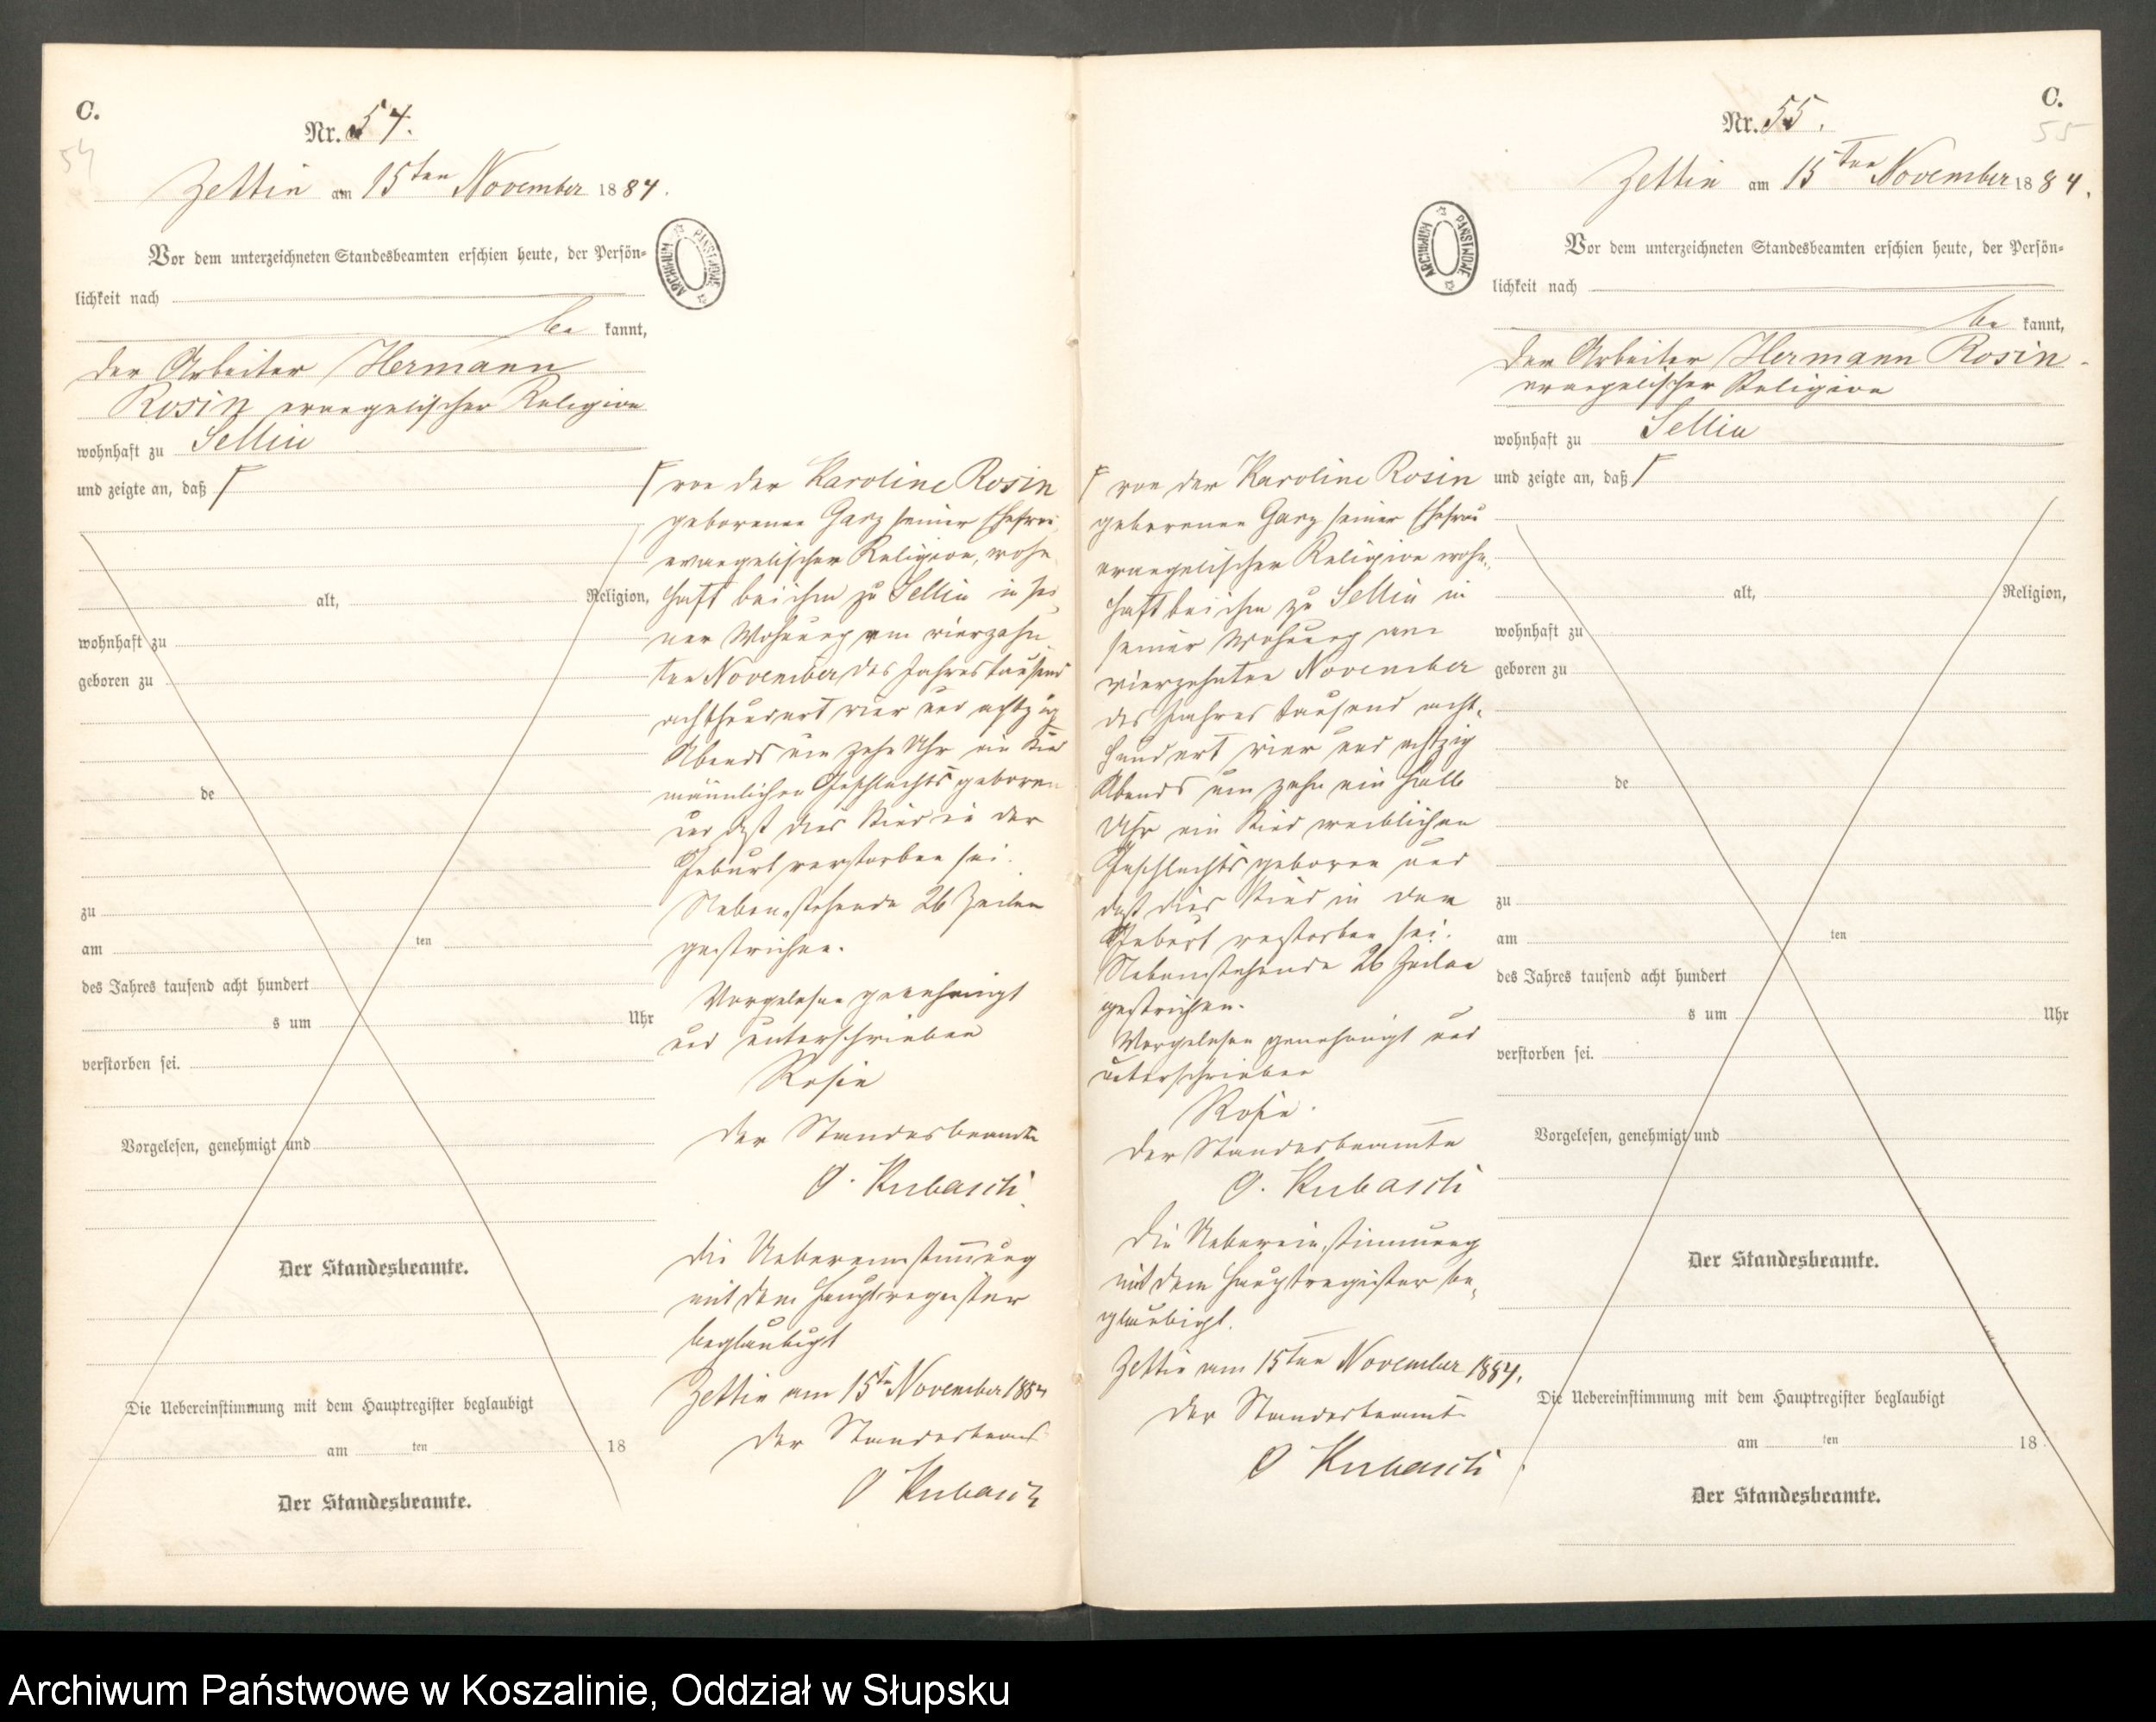 C.
54
Nr. 54.
Zettin am 15ten November 1884.
Vor dem unterzeichneten Standesbeamten erschien heute, der Persön-
lichkeit nach
be kannt,
der Arbeiter Hermann
Rosin evangelischer Religion
wohnhaft zu Sellin
und zeigte an, daß
alt, Religion,
wohnhaft zu
geboren zu
de
zu
am ten
des Jahres tausend acht hundert
s um Uhr
verstorben sei.
Vorgelesen, genehmigt und
Der Standesbeamte.
Die Uebereinstimmung mit dem Hauptregister beglaubigt
am ten 18
Der Standesbeamte.
ARCHIWUM PAŃSTWOWE
von der Karoline Rosin
geborenen Garz seiner Ehefrau
evangelischer Religion, wohn
haft bei ihm zu Sellin in sei
ner Wohnung am vierzehn
ten November des Jahres tausend
achthundert vier und achtzig
Abends um zehn Uhr ein Kind
männlichen Geschlechts geboren
und daß dies Kind in der
Geburt verstorben sei.
Nebenstehende 26 Zeilen
gestrichen.
Vorgelesen genehmigt
und unterschrieben
Rosin
Der Standesbeamte
O. Kubasch
Die Uebereinstimmung
mit dem Hauptregister
beglaubigt
Zettin am 15ten November 1884
Der Standesbeamte
O Kubasch
C.
55
Nr. 55.
Zettin am 15ten November 1884.
Vor dem unterzeichneten Standesbeamten erschien heute, der Persön-
lichkeit nach
be kannt,
der Arbeiter Hermann Rosin
evangelischer Religion
wohnhaft zu Sellin
und zeigte an, daß
alt, Religion,
wohnhaft zu
geboren zu
de
zu
am ten
des Jahres tausend acht hundert
s um Uhr
verstorben sei.
Vorgelesen, genehmigt und
Der Standesbeamte.
Die Uebereinstimmung mit dem Hauptregister beglaubigt
am ten 18
Der Standesbeamte.
ARCHIWUM PAŃSTWOWE
von der Karoline Rosin
geborenen Garz seiner Ehefrau
evangelischer Religion wohn-
haft bei ihm zu Sellin in
seiner Wohnung am
vierzehnten November
des Jahres tausend acht-
hundert vier und achtzig
Abends um zehn ein halb
Uhr ein Kind weiblichen
Geschlechts geboren und
daß dies Kind in der
Geburt verstorben sei.
Nebenstehende 26 Zeilen
gestrichen.
Vorgelesen genehmigt und
unterschrieben
Rosin.
Der Standesbeamte
O. Kubasch
Die Uebereinstimmung
mit dem Hauptregister be-
glaubigt.
Zettin am 15ten November 1884.
Der Standesbeamte
O Kubasch
Archiwum Państwowe w Koszalinie, Oddział w Słupsku